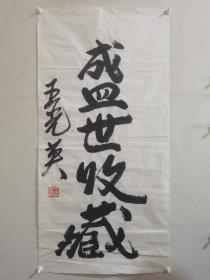 盛世收藏
王光英